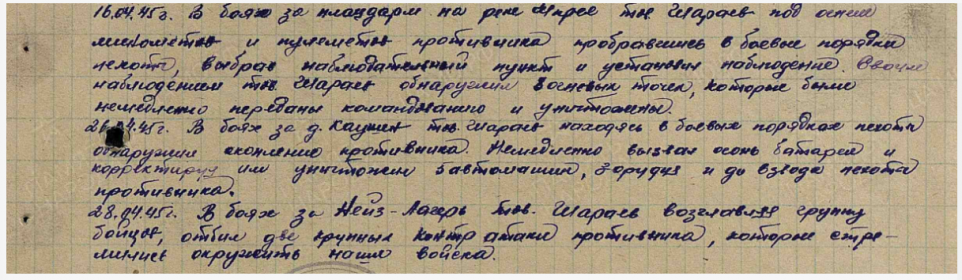 16.04.45г. В боях за плацдарм на реке Шпрее тов. Шараев под огнем
минометов и пулеметов противника пробравшись в боевые порядки
пехоты, выбрал наблюдательный пункт и установил наблюдение. Своим
наблюдением тов. Шараев обнаружил 3 огневых точек, которые были
немедленно переданы командованию и уничтожены.
26.04.45г. В боях за д. Каушен тов. Шараев находясь в боевых порядках пехоты
обнаружил скопление противника. Немедленно вызвал огонь батареи и
корректируя им уничтожены 5 автомашин, 3 орудия и до взвода пехоты
противника.
28.04.45г. В боях за Нейз-Лагерь тов. Шараев возглавляя группу
бойцов, отбил две крупных контратаки противника, которые стре-
мились окружить наши войска.